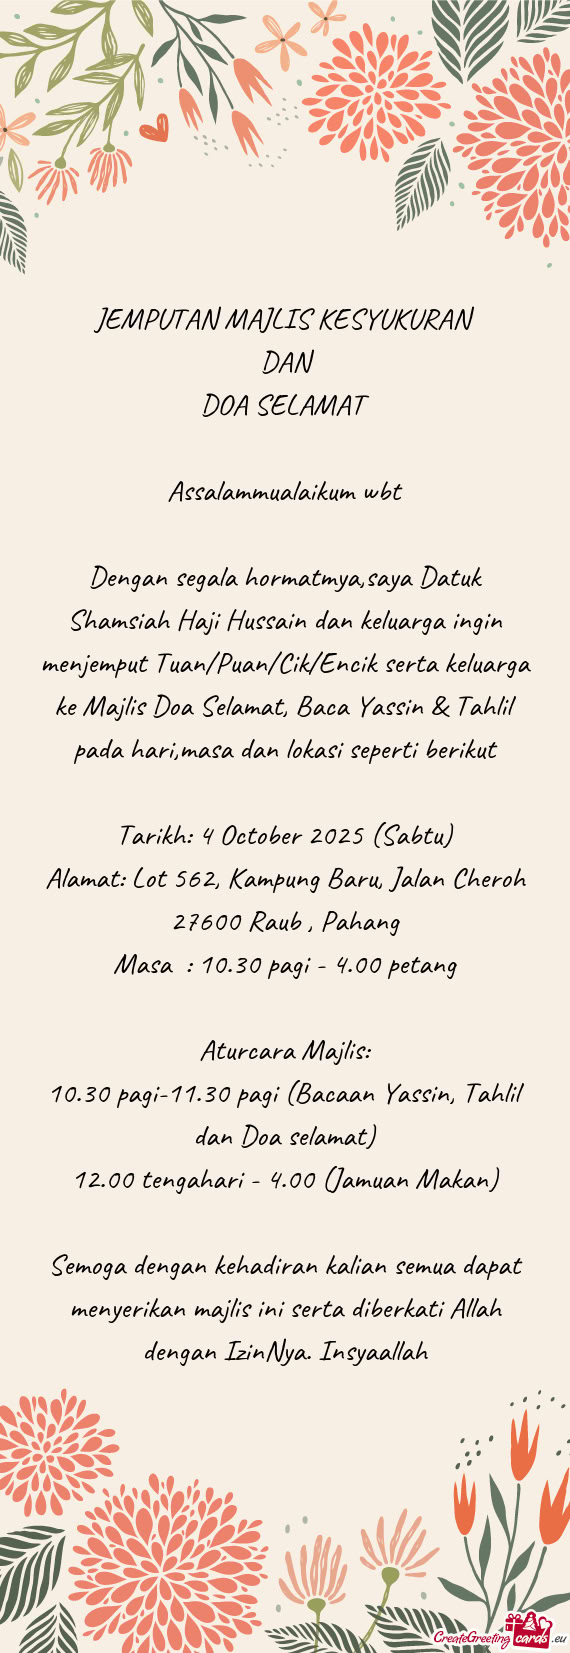 JEMPUTAN MAJLIS KESYUKURAN
DAN
DOA SELAMAT
Assalammualaikum wbt
Dengan segala hormatmya,saya Datuk
Shamsiah Haji Hussain dan keluarga ingin
menjemput Tuan/Puan/Cik/Encik serta keluarga
ke Majlis Doa Selamat, Baca Yassin & Tahlil
pada hari,masa dan lokasi seperti berikut
Tarikh: 4 October 2025 (Sabtu)
Alamat: Lot 562, Kampung Baru, Jalan Cheroh
27600 Raub , Pahang
Masa  : 10.30 pagi - 4.00 petang
Aturcara Majlis:
10.30 pagi-11.30 pagi (Bacaan Yassin, Tahlil
dan Doa selamat)
12.00 tengahari - 4.00 (Jamuan Makan)
Semoga dengan kehadiran kalian semua dapat
menyerikan majlis ini serta diberkati Allah
dengan IzinNya. Insyaallah
CreateGreetingcards.eu